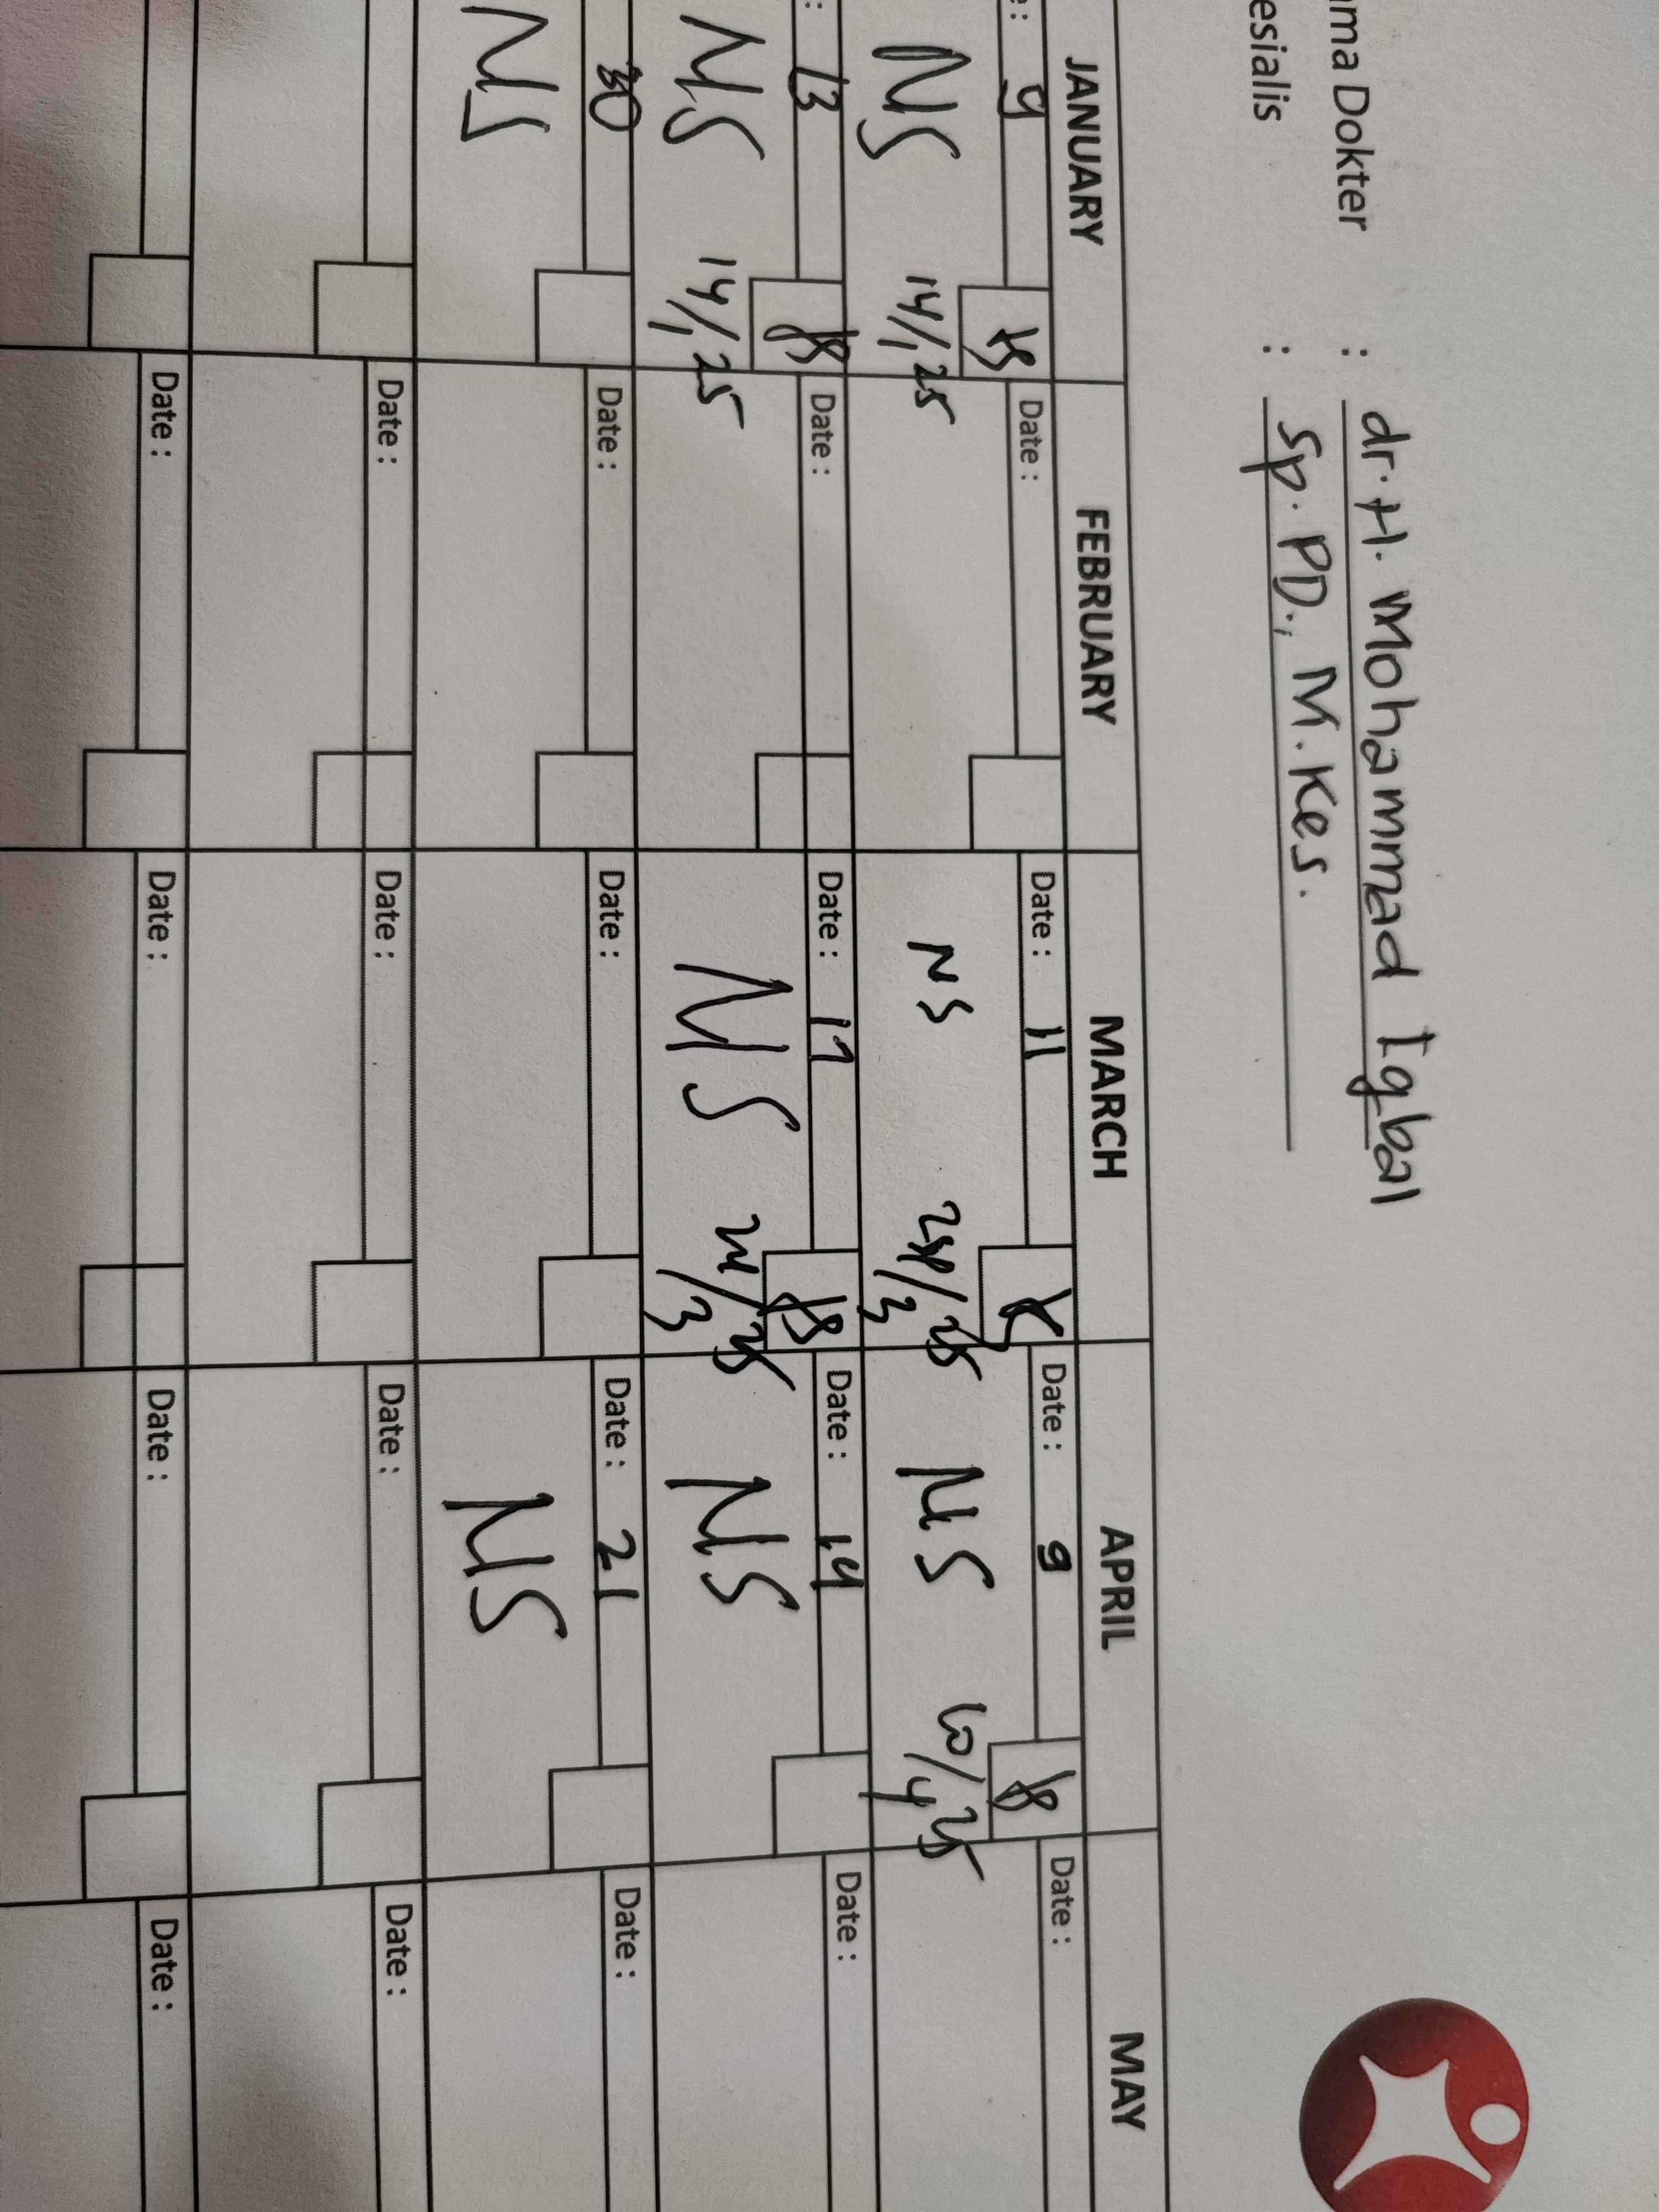 ma Dokter : dr. H. Mohammad Iqbal
esialis : Sp. PD., M. Kes.
JANUARY FEBRUARY MARCH APRIL MAY
e: 9 Date: Date: 11 Date: 9 Date:
NS 14/1 25 NS /3 25 NS 10/4 25
: 13 Date: Date: 17 Date: 14 Date:
NS 14/1 25 NS 24/3 25 NS
30 Date: Date: Date: 21 Date:
NS NS
Date: Date: Date: Date:
Date: Date: Date: Date: